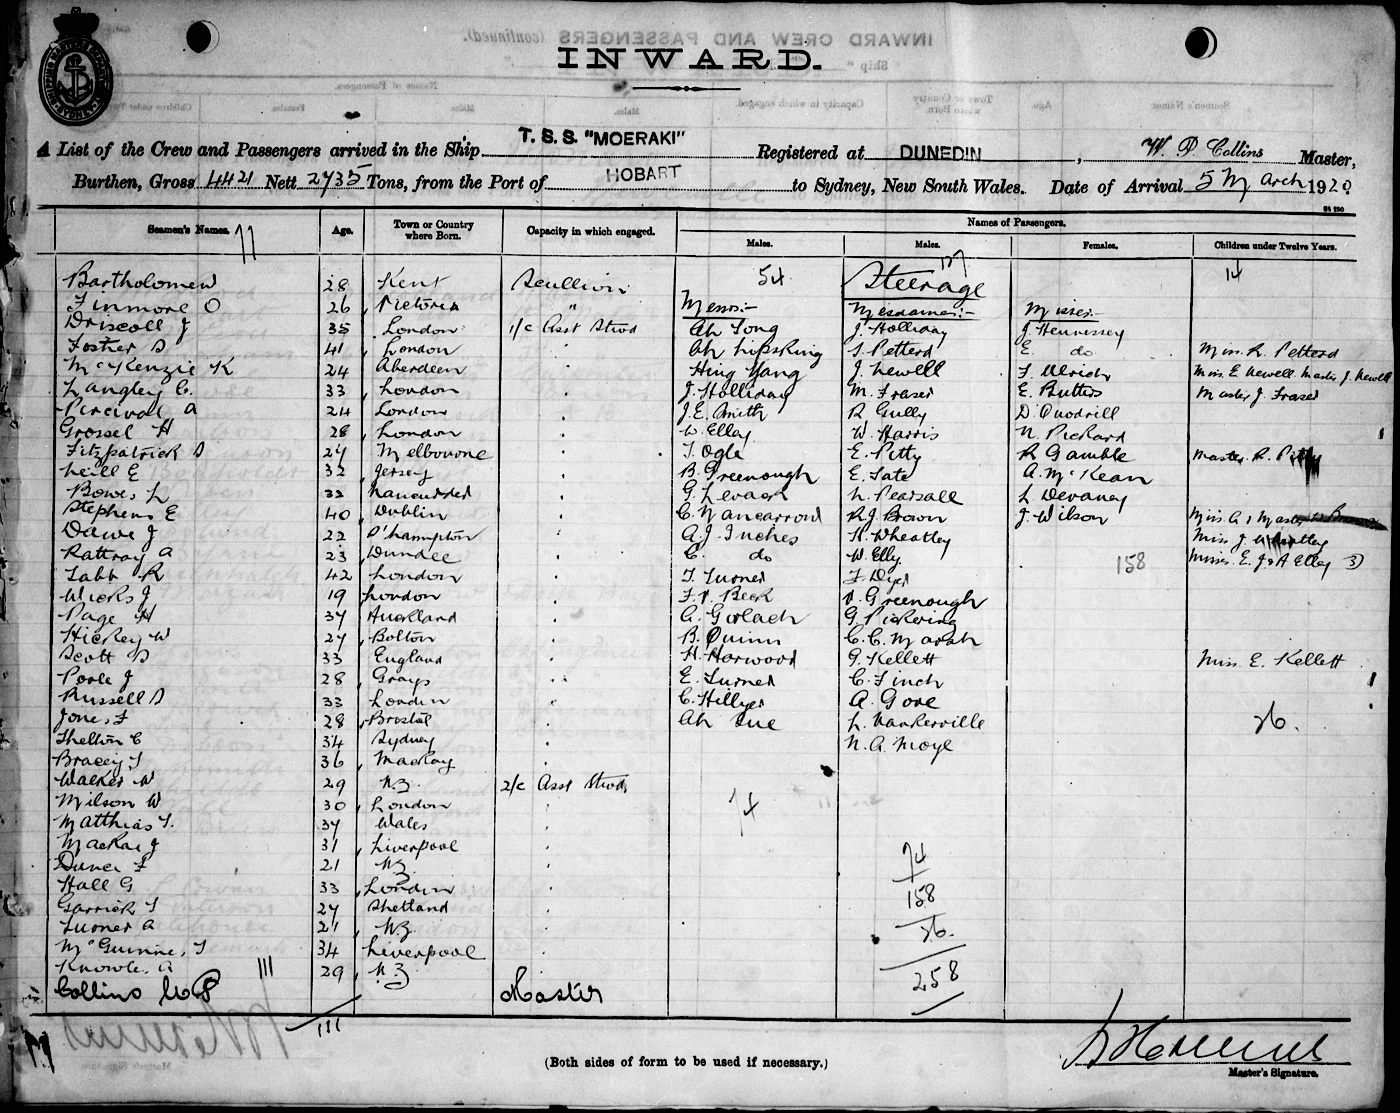 INWARD.
A List of the Crew and Passengers arrived in the Ship T. S. S. "MOERAKI" Registered at DUNEDIN, W. P. Collins Master,
Burthen, Gross 4421 Nett 2735 Tons, from the Port of HOBART to Sydney, New South Wales. Date of Arrival 5 March 1920
Seamen's Names. Age. Town or Country where Born. Capacity in which engaged. Names of Passengers.
Males. Males. Females. Children under Twelve Years.
11
54 127 14
Steerage
Bartholomew 28 Kent Scullion
Finmore O 26 Victoria " Messrs:- Mesdames:- Misses:-
Driscoll J 35 London 1/c Asst Stwd Ah Tong J. Holliday J. Hennessey
Foster S 41 London Ah S. Petterd E. do Miss. R. Petterd
McKenzie K 24 Aberdeen Hing Yang J. Newell F. Ulrich Miss E Newell Master J. Newell
Langley C. 33 London J. Holliday M. Fraser E. Butters Master J. Fraser
Percival A 24 London J. E. Smith R Gully D. Quodrill
Grossel H 28 London W. Ellay W. Harris N. Pickard
Fitzpatrick S 27 Melbourne T. Ogle E. Pitty R Gamble Master. R. Pitty
Neill E 32 Jersey B. Greenough E. Tate A. McKean
Bowes L 32 G. Levack N. Pearsall L Devaney
Stephens E 40 Dublin C. Nancarrow R. J. Brown J. Wilson Miss. A & Master
Dawe J 22 S'hampton A. J. Inches H. Wheatley Miss J. Wheatley
Rattray A 23 Dundee C. do W. Elly 158 Misses. E. J & A Elley 3)
Tabb R 42 London T. Turner F. Dyer
Wicks J 19 London F. V. Beck V. Greenough
Page H 37 Auckland A. Gorlach G. Pickering
Hickey W 27 Bolton B. Quinn C. C. Marsh
Scott S 33 England H. Harwood G. Kellett Miss. E. Kellett
Poole J 28 Grays E. Turner C. Finch
Russell S 33 London C. Hillyer A. Gore
Jones F 28 Bristol Ah Sue L. Vankerville 26.
Shelton C 34 Sydney N. A. Moye
Bracey S 36 Mackay
Walker W 29 N.Z. 2/c Asst Stwd
Milson W 30 London 74
Matthias T. 37 Wales
Mackay J 31 Liverpool
Dunce F 21 N.Z. 74
Hall G 33 London
Garrick T 27 Shetland 158
Turner A 21 N.Z. 26.
McGuinnes, T 34 Liverpool
Knowles A 111 29 N.Z. 258
Collins W P Master
111
(Both sides of form to be used if necessary.)
Master's Signature.